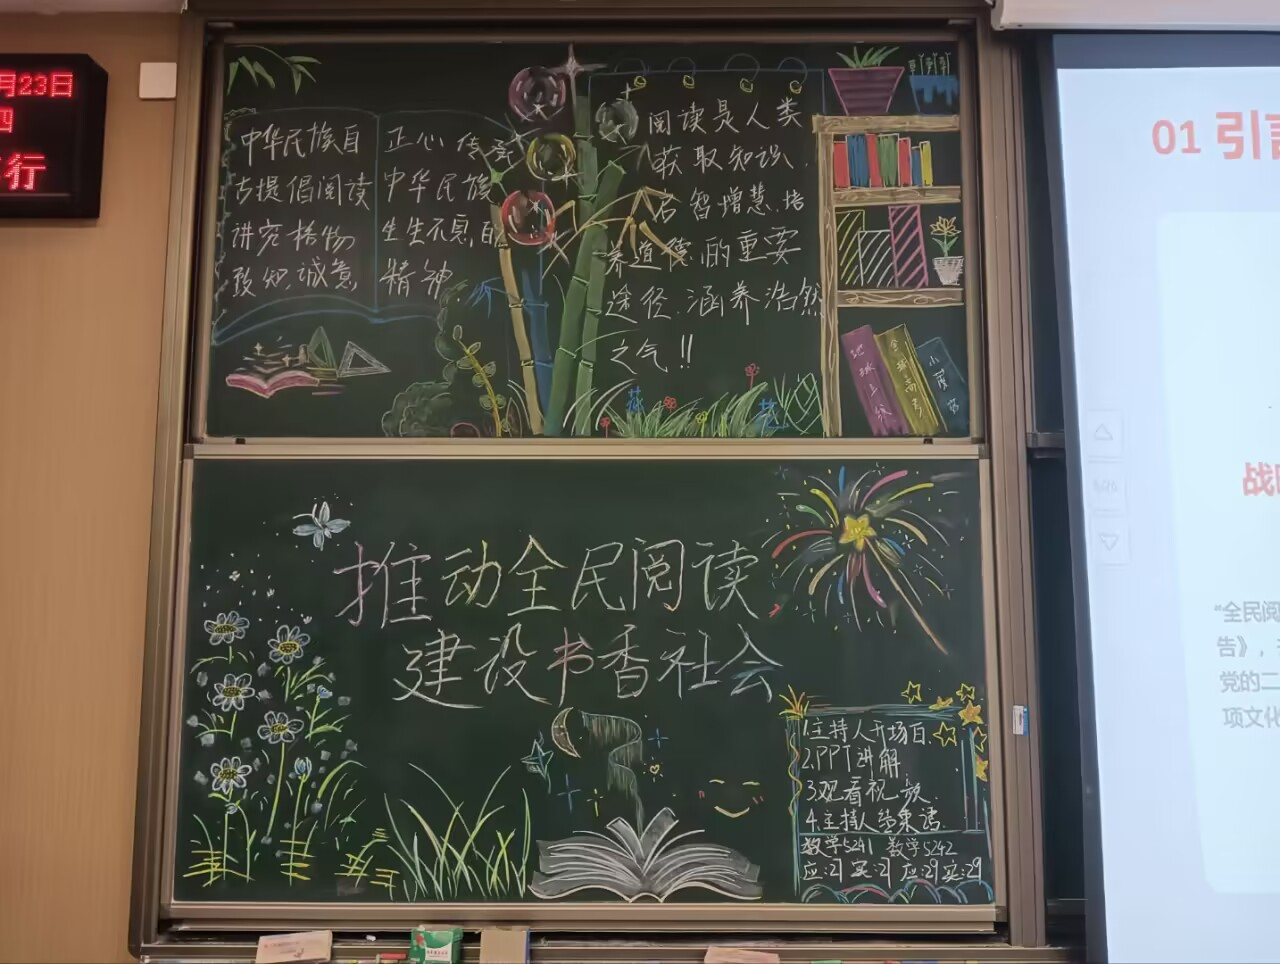 月23日
四
行
中华民族自
古提倡阅读
讲究格物
致知，诚意，
正心，传承
中华民族
生生不息，自
精神，
阅读是人类
获取知识、
启智增慧、培
养道德的重要
途径，涵养浩然
之气！！
地球上线
全球高考
小蘑菇
推动全民阅读
建设书香社会
1.主持人开场白.
2.PPT讲解
3.观看视频.
4.主持人结束语.
数学5241 数学5242
应:21 实:21 应:29 实:29
01 引言
“全民阅
告》，
党的二
项文化